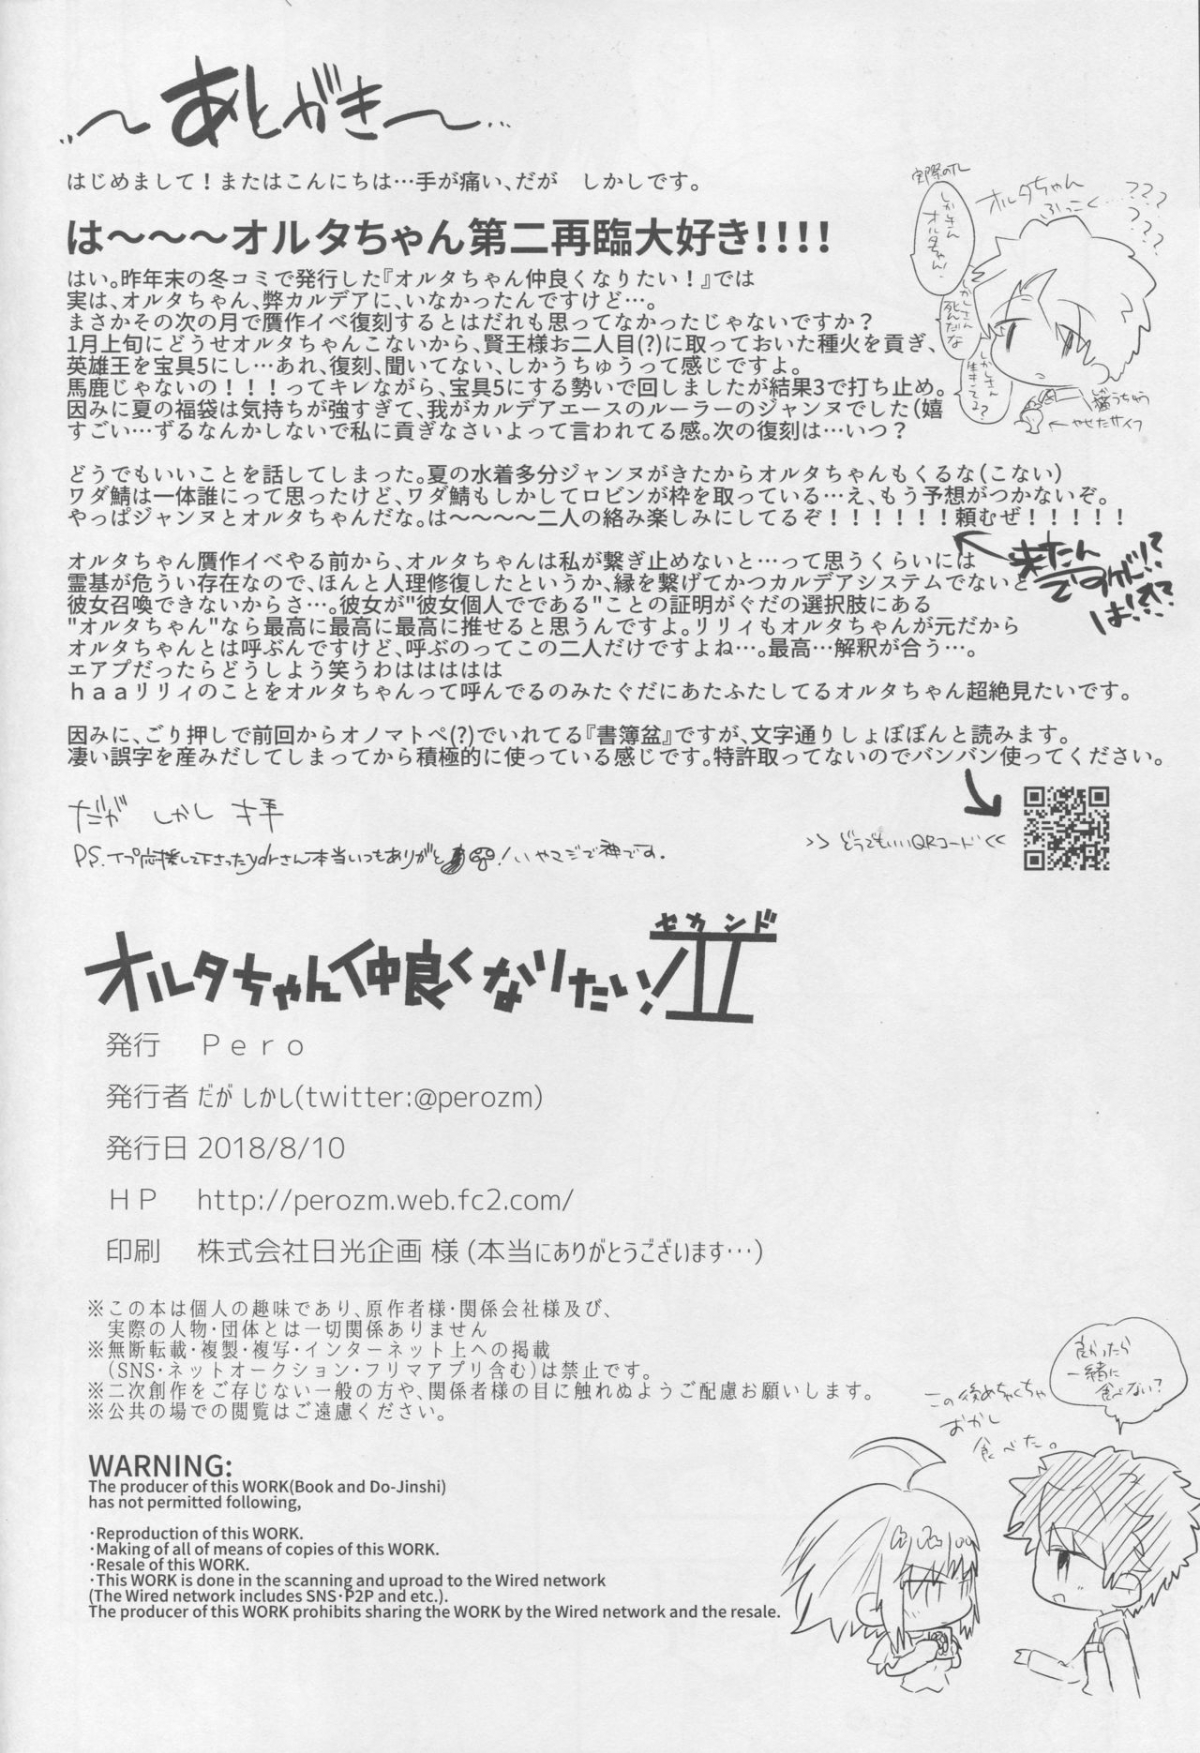 ～あとがき～
はじめまして！またはこんにちは…手が痛い、だが　しかしです。
は～～～オルタちゃん第二再臨大好き！！！！
はい。昨年末の冬コミで発行した『オルタちゃん仲良くなりたい！』では
実は、オルタちゃん、弊カルデアに、いなかったんですけど…。
まさかその次の月で贋作イベ復刻するとはだれも思ってなかったじゃないですか？
1月上旬にどうせオルタちゃんこないから、賢王様お二人目(?)に取っておいた種火を貢ぎ、
英雄王を宝具5にし…あれ、復刻、聞いてない、しかうちゅうって感じですよ。
馬鹿じゃないの！！！ってキレながら、宝具5にする勢いで回しましたが結果3で打ち止め。
因みに夏の福袋は気持ちが強すぎて、我がカルデアエースのルーラーのジャンヌでした(嬉
すごい…ずるなんかしないで私に貢ぎなさいよって言われてる感。次の復刻は…いつ？
どうでもいいことを話してしまった。夏の水着多分ジャンヌがきたからオルタちゃんもくるな(こない)
ワダ鯖は一体誰にって思ったけど、ワダ鯖もしかしてロビンが枠を取っている…え、もう予想がつかないぞ。
やっぱジャンヌとオルタちゃんだな。は～～～～二人の絡み楽しみにしてるぞ！！！！！！頼むぜ！！！！！
来たん
ですけど!?
は!?!?
オルタちゃん贋作イベやる前から、オルタちゃんは私が繋ぎ止めないと…って思うくらいには
霊基が危うい存在なので、ほんと人理修復したというか、縁を繋げてかつカルデアシステムでないと
彼女召喚できないからさ…。彼女が"彼女個人でである"ことの証明がぐだの選択肢にある
"オルタちゃん"なら最高に最高に最高に推せると思うんですよ。リリィもオルタちゃんが元だから
オルタちゃんとは呼ぶんですけど、呼ぶのってこの二人だけですよね…。最高…解釈が合う…。
エアプだったらどうしよう笑うわはははははは
ｈａａリリィのことをオルタちゃんって呼んでるのみたぐだにあたふたしてるオルタちゃん超絶見たいです。
因みに、ごり押しで前回からオノマトペ(?)でいれてる『書簿盆』ですが、文字通りしょぼぼんと読みます。
凄い誤字を産みだしてしまってから積極的に使っている感じです。特許取ってないのでバンバン使ってください。
だが しかし 拝
>> どうでもいいQRコード <<
P.S.イプ応援して下さったydrさん本当いつもありがと!いやマジで神です。
実際のTL
しかしさん
オルタちゃん
しかしさん
死んだな
しかしさん
生きてる？
オルタちゃん
ふっこく…???
???
猫うちゅう
←やせたサイフ
オルタちゃん仲良くなりたい！Ⅱ
セカンド
発行　Ｐｅｒｏ
発行者 だが しかし(twitter:@perozm)
発行日 2018/8/10
ＨＰ　http://perozm.web.fc2.com/
印刷　株式会社日光企画 様 (本当にありがとうございます…)
※この本は個人の趣味であり、原作者様・関係会社様及び、
実際の人物・団体とは一切関係ありません
※無断転載・複製・複写・インターネット上への掲載
(SNS・ネットオークション・フリマアプリ含む)は禁止です。
※二次創作をご存じない一般の方や、関係者様の目に触れぬようご配慮お願いします。
※公共の場での閲覧はご遠慮ください。
WARNING:
The producer of this WORK(Book and Do-Jinshi)
has not permitted following,
・Reproduction of this WORK.
・Making of all of means of copies of this WORK.
・Resale of this WORK.
・This WORK is done in the scanning and uproad to the Wired network
(The Wired network includes SNS・P2P and etc.).
The producer of this WORK prohibits sharing the WORK by the Wired network and the resale.
良かったら
一緒に
食べない？
この後めちゃくちゃ
おかし
食べた。